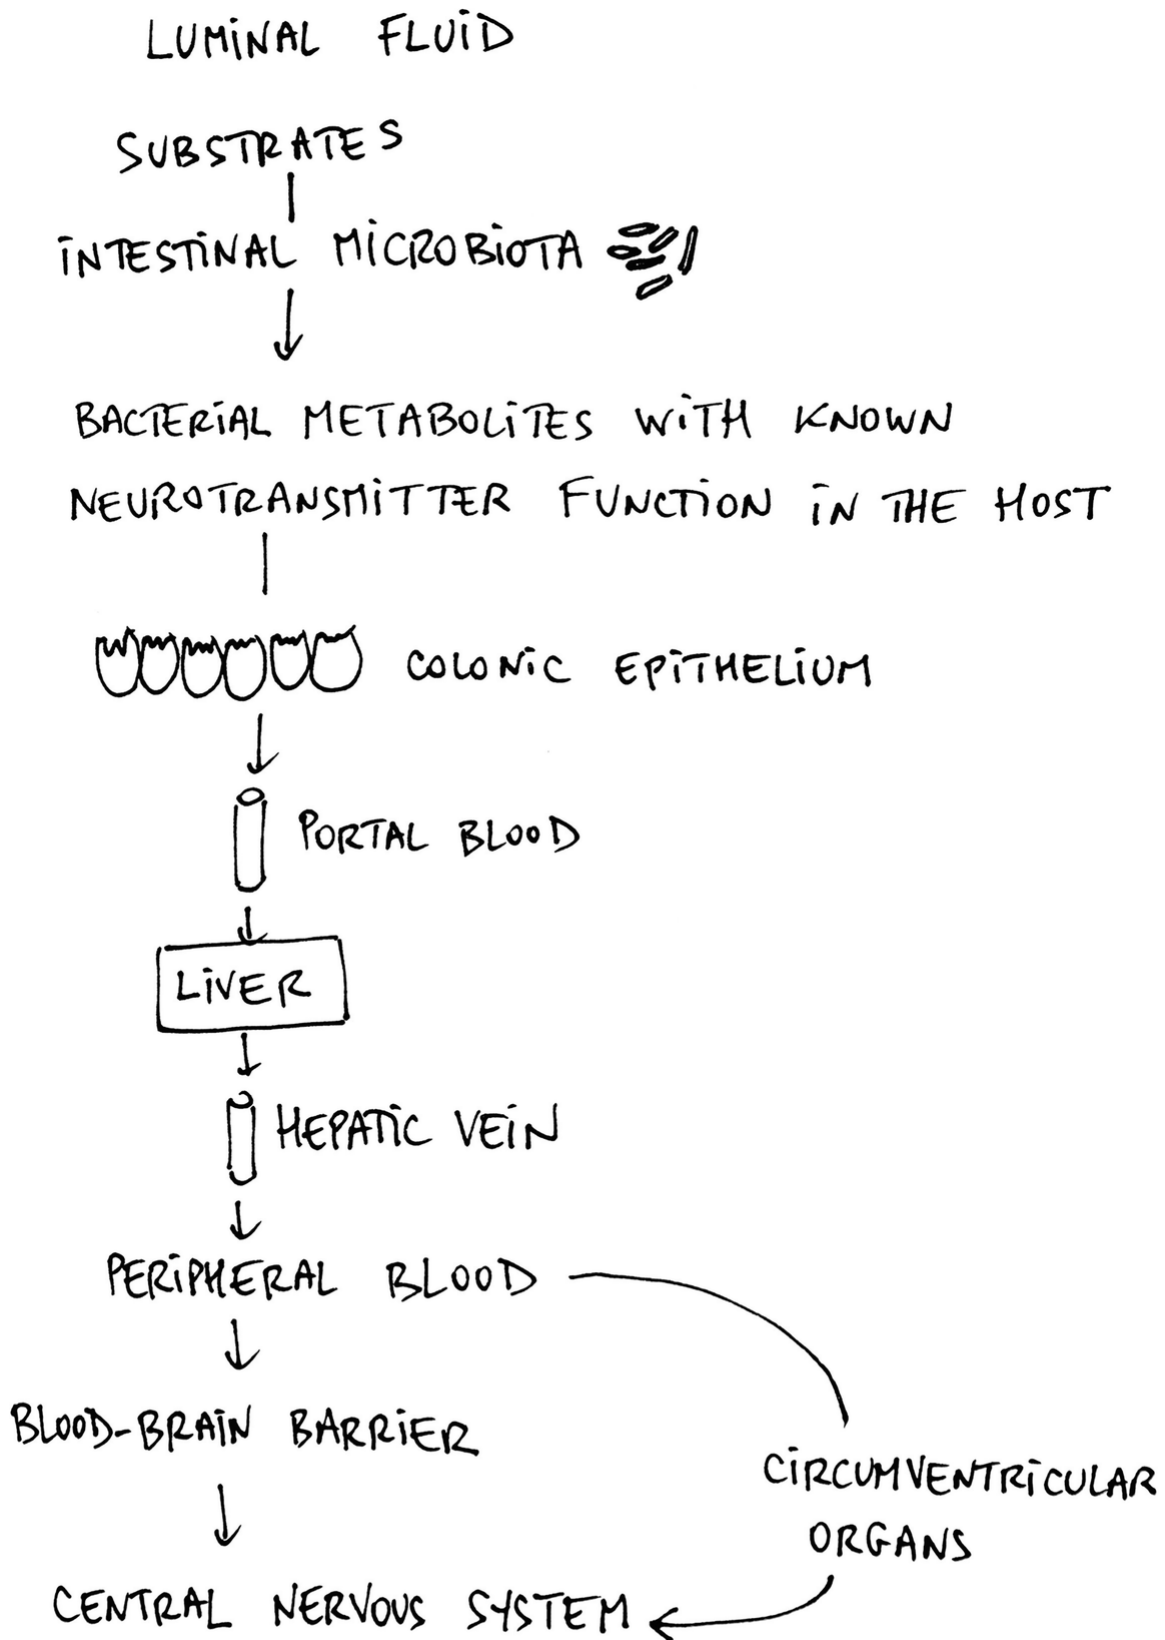 LUMINAL FLUID
SUBSTRATES
INTESTINAL MICROBIOTA
BACTERIAL METABOLITES WITH KNOWN
NEUROTRANSMITTER FUNCTION IN THE HOST
COLONIC EPITHELIUM
PORTAL BLOOD
LIVER
HEPATIC VEIN
PERIPHERAL BLOOD
BLOOD-BRAIN BARRIER
CIRCUMVENTRICULAR
ORGANS
CENTRAL NERVOUS SYSTEM